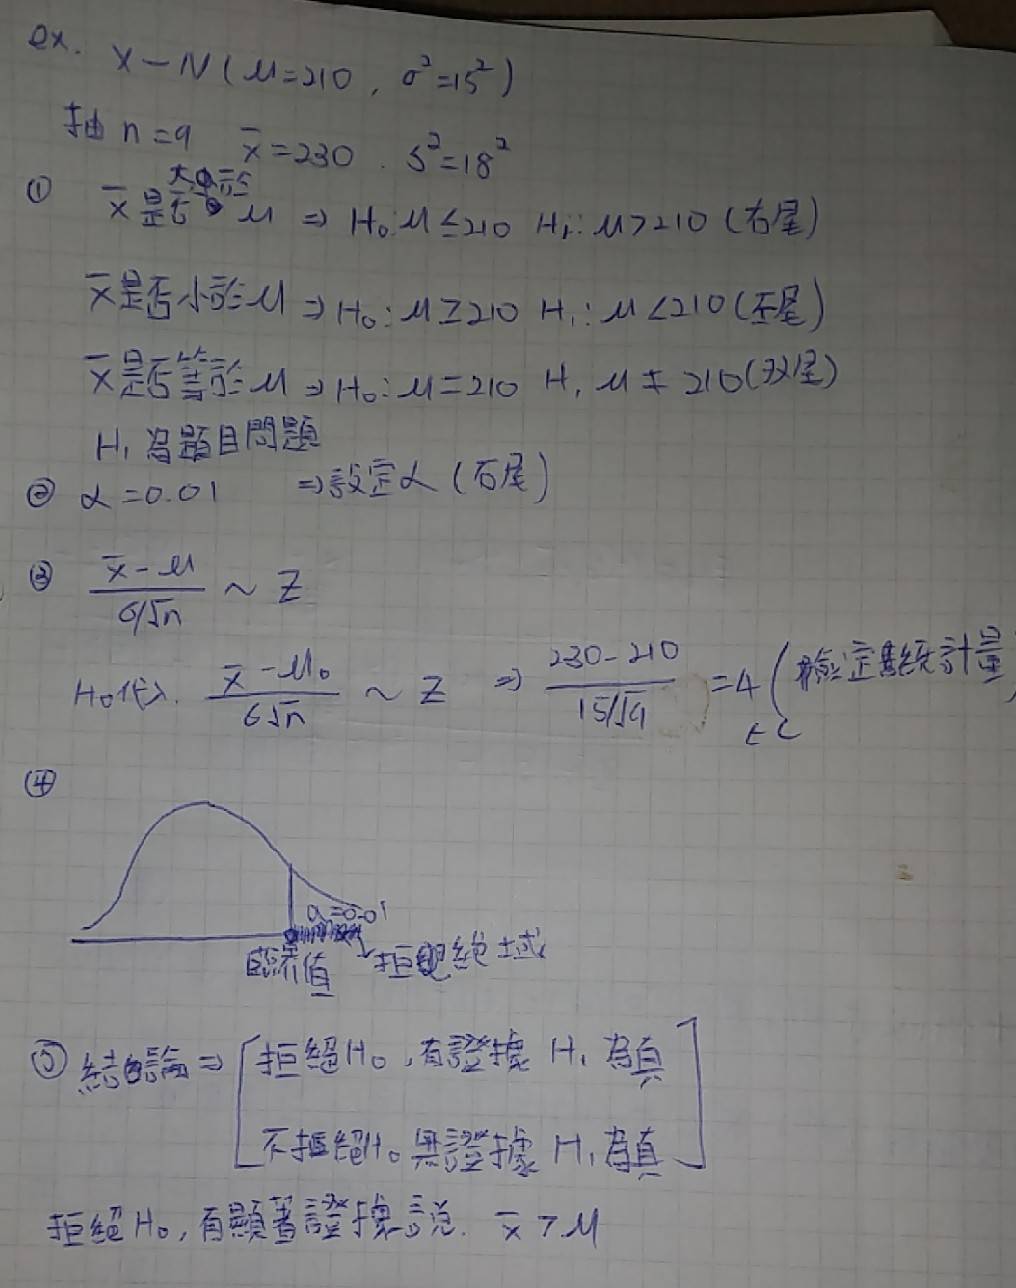 ex. X－N(μ=210, σ²=15²)
抽 n=9 x̄=230. S²=18²
① x̄是否大於μ ⇒ H₀:μ≤210 H₁:μ>210 (右尾)
x̄是否小於μ ⇒ H₀:μ≥210 H₁:μ<210 (左尾)
x̄是否等於μ ⇒ H₀:μ=210 H₁ μ≠210 (双尾)
H₁為題目問題
② α=0.01 ⇒設定α (右尾)
③ (x̄-μ)/(σ/√n) ~ Z
H₀代入. (x̄-μ₀)/(σ√n) ~ Z ⇒ (230-210)/(15/√9) =4 (檢定統計量)
④
α=0.01
臨界值 拒絕域
⑤ 結論⇒ [拒絕H₀,有證據 H₁為真
不拒絕H₀無證據 H₁為真]
拒絕H₀,有顯著證據說. x̄>μ